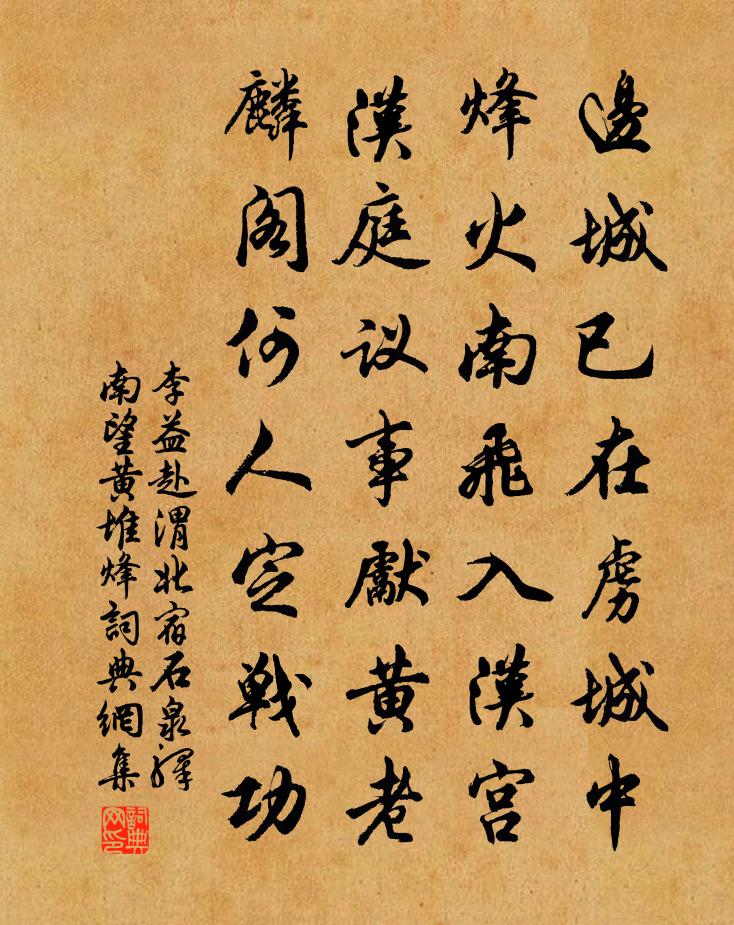 邊城已在虜城中
烽火南飛入漢宮
漢庭议事獻黃老
麟閣何人定戰功
李益赴渭北宿石泉驛
南望黃堆烽詞典網集
詞典
网印